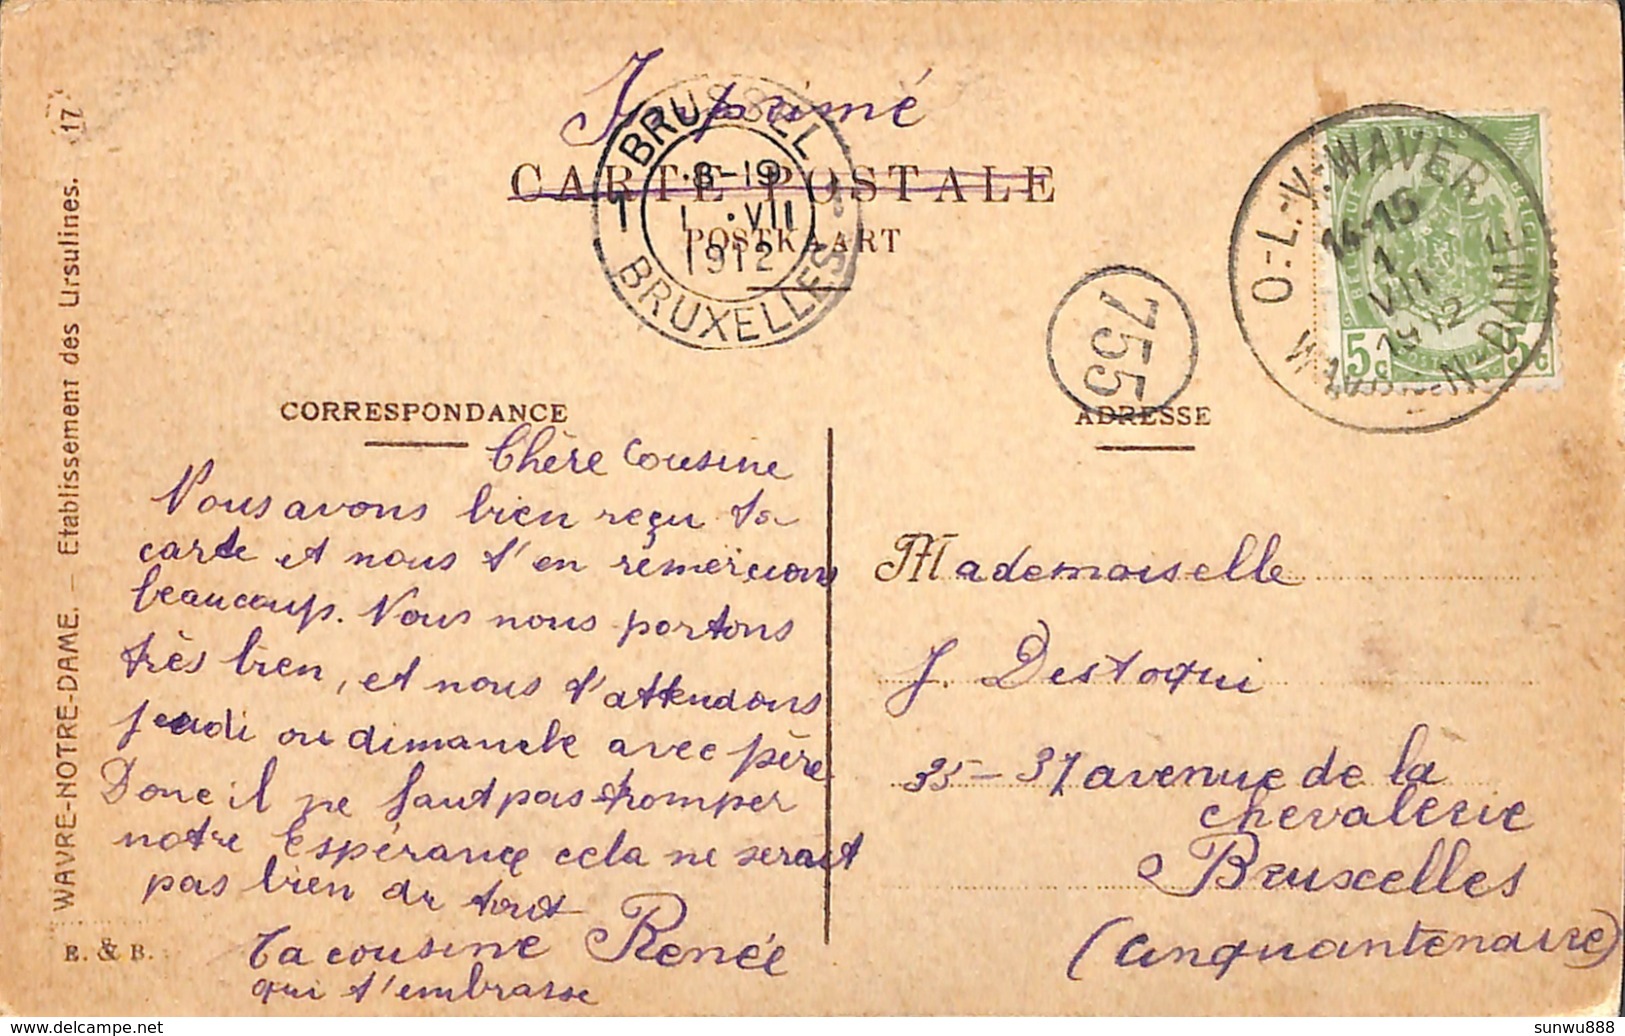 Imprimé
CARTE POSTALE
POSTKAART
1 BRUSSEL
8-19
1 .VII
1912
BRUXELLES
O=L=V=WAVER
14-15
1
VII
1912
WAVRE-N-DAME
POSTES
BELGIQUE
BELGIE
5c 5c
755
CORRESPONDANCE
ADRESSE
Chère Cousine
Nous avons bien reçu ta
carte et nous t'en remercions
beaucoup. Nous nous portons
très bien, et nous t'attendons
jeudi ou dimanche avec père
Donc il ne faut pas tromper
notre Espérance cela ne serait
pas bien du tout
Ta cousine Renée
qui t'embrasse
Mademoiselle
J. Destoqui
35-37 avenue de la
chevalerie
Bruxelles
(Cinquantenaire)
WAVRE-NOTRE-DAME. - Etablissement des Ursulines. 17
E. & B.
delcampe.net
sunwu888